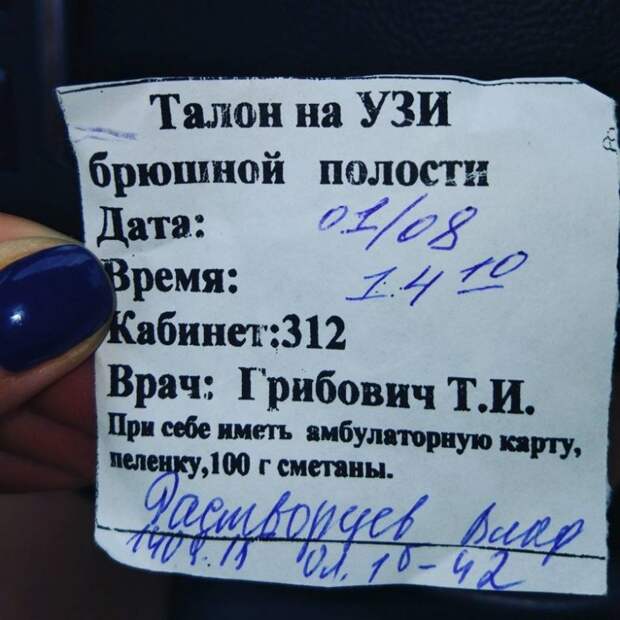 Талон на УЗИ
брюшной полости
Дата: 01/08
Время: 14 10
Кабинет:312
Врач: Грибович Т.И.
При себе иметь амбулаторную карту,
пеленку,100 г сметаны.
Растворцев Влад